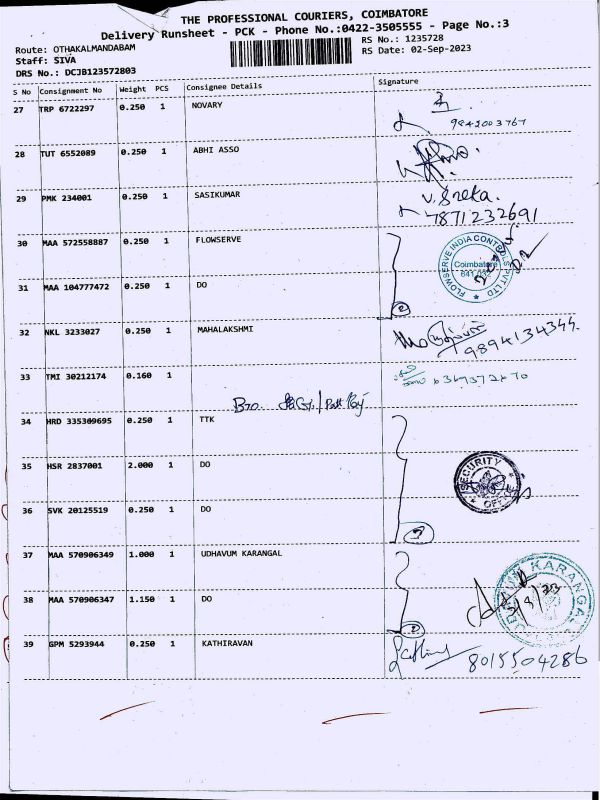 THE PROFESSIONAL COURIERS, COIMBATORE
Delivery Runsheet - PCK - Phone No.:0422-3505555 - Page No.:3
Route: OTHAKALMANDABAM
RS No.: 1235728
Staff: SIVA
RS Date: 02-Sep-2023
DRS No.: DCJB123572803
S No Consignment No Weight PCS Consignee Details Signature
27 TRP 6722297 0.250 1 NOVARY
9842003767
28 TUT 6552089 0.250 1 ABHI ASSO
29 PMK 234001 0.250 1 SASIKUMAR V. Sreka.
7871232691
30 MAA 572558887 0.250 1 FLOWSERVE
FLOWSERVE INDIA CONTROLS PVT LTD
Coimbatore
641 032
31 MAA 104777472 0.250 1 DO
2
32 NKL 3233027 0.250 1 MAHALAKSHMI
9894134344.
33 TMI 30212174 0.160 1
34 HRD 335309695 0.250 1 TTK
35 HSR 2837001 2.000 1 DO
SECURITY
OFFICE
36 SVK 20125519 0.250 1 DO
37 MAA 570906349 1.000 1 UDHAVUM KARANGAL
38 MAA 570906347 1.150 1 DO
2
39 GPM 5293944 0.250 1 KATHIRAVAN
8015504286